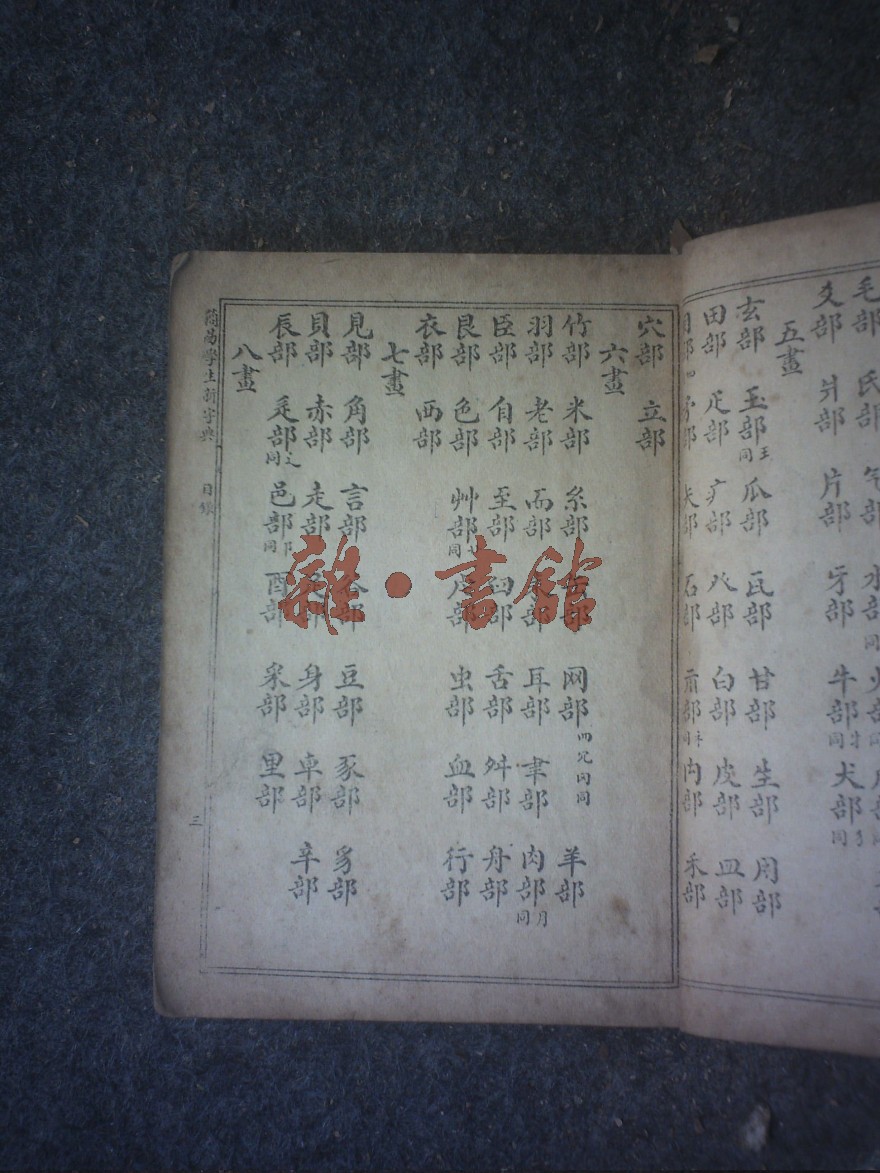 毛部 氏部
爻部 爿部 片部 牙部 牛部 牜同 犬部 犭同
五畫
玄部 玉部 王同 瓜部 瓦部 甘部 生部 用部
田部 疋部 疒部 癶部 白部 皮部 皿部
矛部 矢部 石部 禸部 禾部
穴部 立部
六畫
竹部 米部 糸部 网部 羊部
羽部 老部 而部 耳部 聿部 肉部 月同
臣部 自部 至部 臼部 舌部 舛部 舟部
艮部 色部 艸部 虍部 虫部 血部 行部
衣部 襾部
七畫
見部 角部 言部 谷部 豆部 豕部 豸部
貝部 赤部 走部 足部 身部 車部 辛部
辰部 辵部 辶同 邑部 阝同 酉部 釆部 里部
八畫
簡易學生新字典 目錄 三
雜·書館